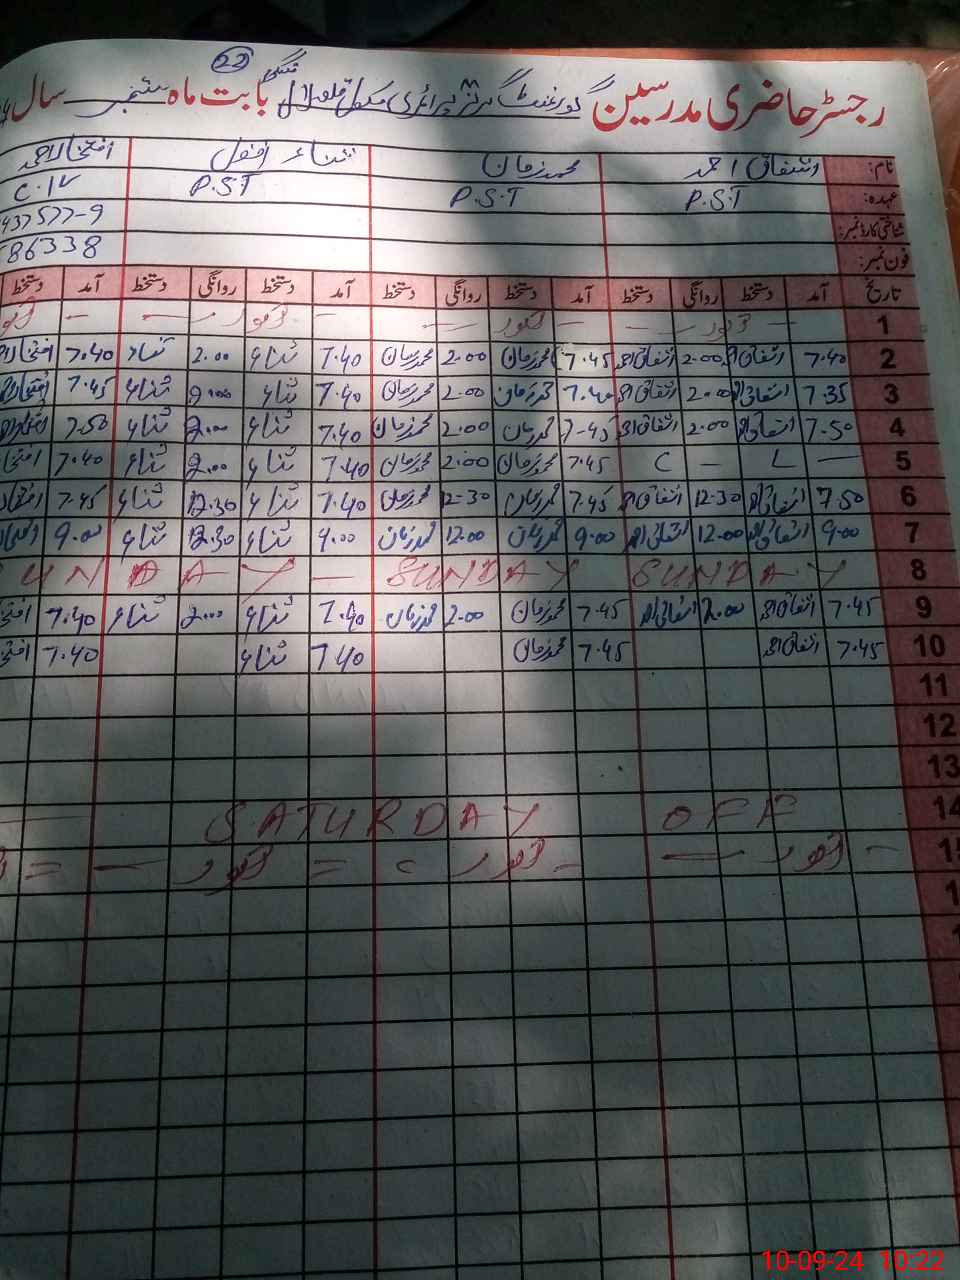 22
رجسٹر حاضری مدرسین گورنمنٹ پرائمری بابت ماہ ستمبر سال
نام: اشفاق احمد محمد زمان ثناء افتخار احمد
عہدہ: P.S.T P.S.T P.S.T C.IV
شناختی کارڈ نمبر: 437577-9
فون نمبر: 86338
تاریخ آمد دستخط روانگی دستخط آمد دستخط روانگی دستخط آمد دستخط روانگی دستخط آمد دستخط
1 - اتوار - - اتوار - - اتوار - -
2 7.40 اشفاق احمد 2.00 اشفاق احمد 7.45 محمد زمان 2.00 محمد زمان 7.40 ثناء 2.00 ثناء 7.40
3 7.35 اشفاق احمد 2.00 اشفاق احمد 7.40 محمد زمان 2.00 محمد زمان 7.40 ثناء 2.00 ثناء 7.45
4 7.50 اشفاق احمد 2.00 اشفاق احمد 7-45 محمد زمان 2.00 محمد زمان 7.40 ثناء 2.00 ثناء 7.50
5 — L - C 7.45 محمد زمان 2.00 محمد زمان 7.40 ثناء 2.00 ثناء 7.40
6 7.50 اشفاق احمد 12.30 اشفاق احمد 7.45 محمد زمان 12-30 محمد زمان 7.40 ثناء 12.30 ثناء 7.45
7 9.00 اشفاق احمد 12.00 اشفاق احمد 9.00 محمد زمان 12.00 محمد زمان 9.00 ثناء 12.30 ثناء 9.00
8 UNDAY - SUNDAY SUNDAY
9 7.45 اشفاق احمد 2.00 اشفاق احمد 7.45 محمد زمان 2.00 محمد زمان 7.40 ثناء 2.00 ثناء 7.40
10 7.45 اشفاق احمد 7.45 محمد زمان 7.40 ثناء 7.40
11
12
13
14 SATURDAY OFF
15 - اتوار — - اتوار = اتوار — =
10-09-24 10:22